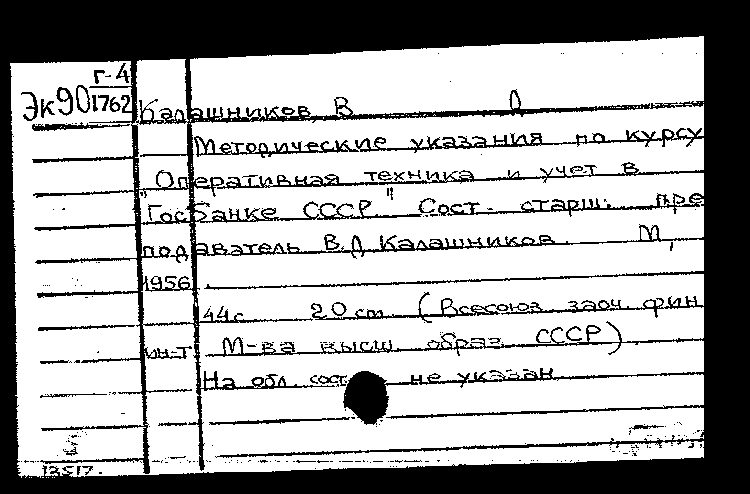 Г-4
Эк90 1762
Калашников, В Д
Методические указания по курсу
"Оперативная техника и учет в
Госбанке СССР" Сост. старш. пре
подаватель В.Д Калашников. М,
1956.
44 с 20 cm (Всесоюз заоч фин
ин-т М-ва высш. образ СССР)
На обл. сост не указан
13517.